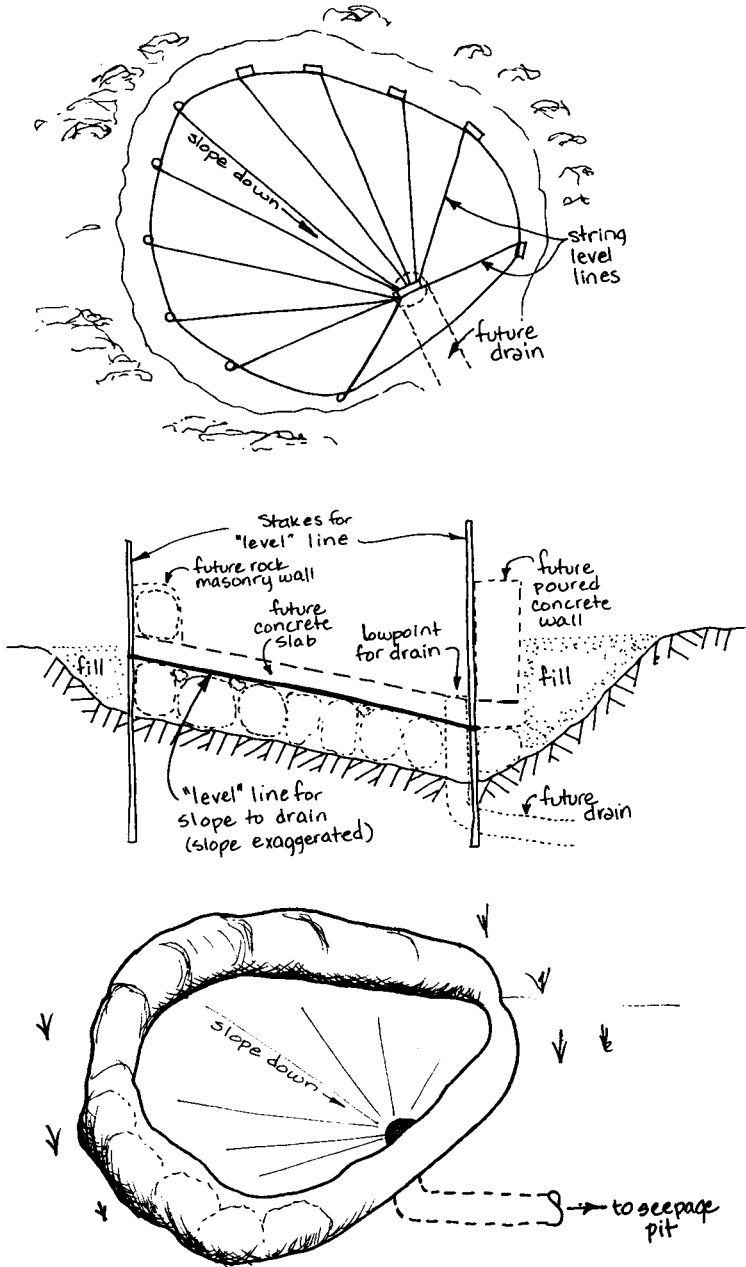 slope down
string
level
lines
future
drain
Stakes for
"level" line
future rock
masonry wall
future
concrete
slab
lowpoint
for drain
future
poured
concrete
wall
fill
fill
"level" line for
slope to drain
(slope exaggerated)
future
drain
slope down
to seepage
pit